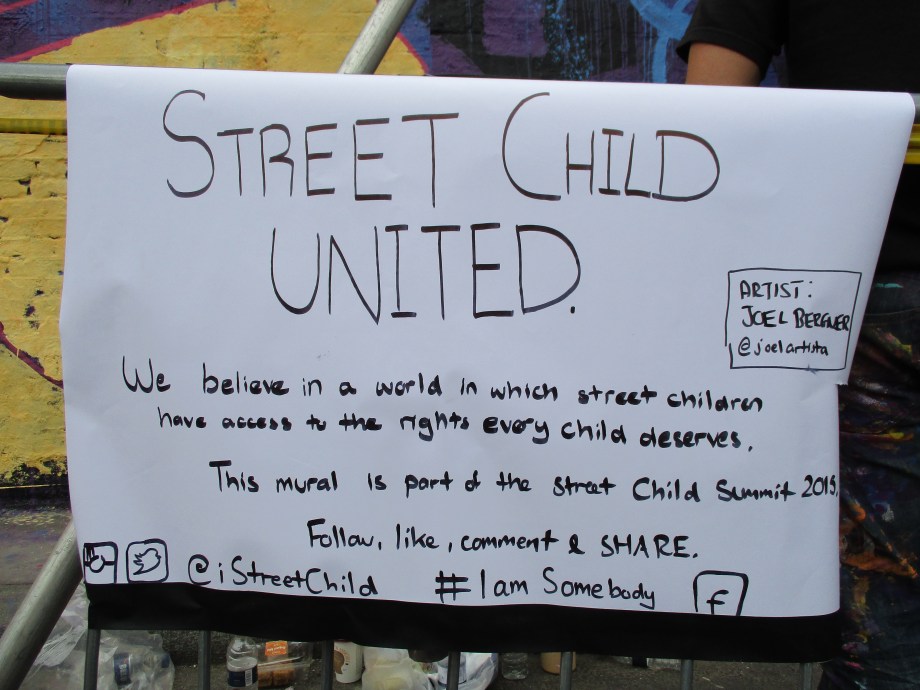 STREET CHILD
UNITED.
ARTIST:
JOEL BERGNER
@joelartista
We believe in a world in which street children
have access to the rights every child deserves.
This mural is part of the street Child Summit 2015.
Follow, like, comment & SHARE.
@iStreetChild #IamSomebody f